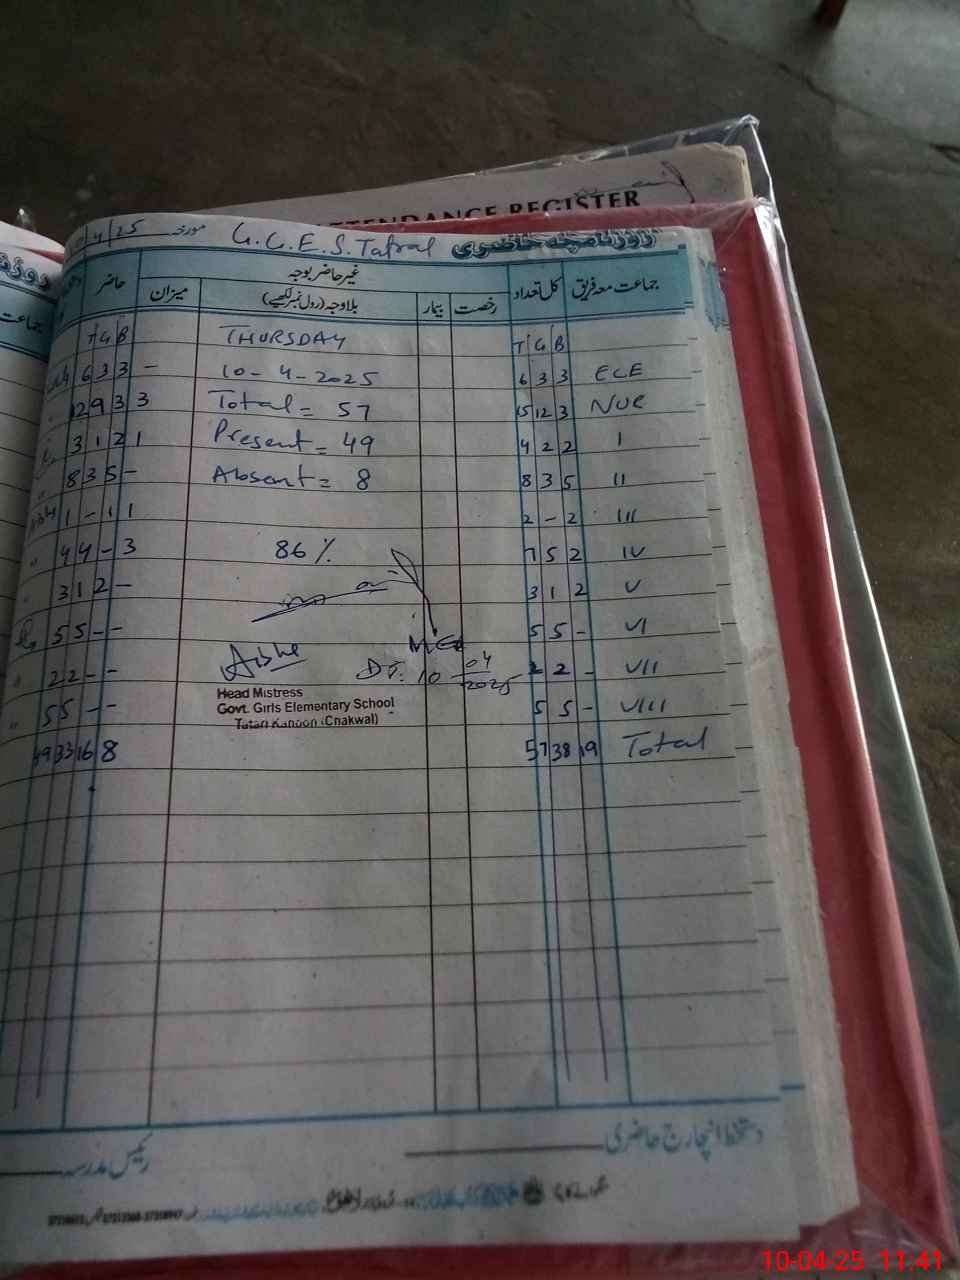 ATTENDANCE REGISTER
4/25 مورخہ G.G.E.S. Tatral روزنامچہ حاضری
جماعت معہ فریق کل تعداد غیر حاضر بوجہ حاضر
رخصت بیمار بلاوجہ (رول نمبر لکھیے) میزان
T G B THURSDAY T G B
6 3 3 - 10-4-2025 6 3 3 ECE
12 9 3 3 Total = 57 15 12 3 Nur
3 1 2 1 Present = 49 4 2 2 I
8 3 5 - Absent = 8 8 3 5 II
1 - 1 1 2 - 2 III
4 4 - 3 86 % 7 5 2 IV
3 1 2 - 3 1 2 V
5 5 - - 5 5 - VI
2 2 - - DT: 10 04 2025 2 2 - VII
Head Mistress
Govt. Girls Elementary School
(Chakwal)
5 5 - - 5 5 - VIII
49 33 16 8 57 38 19 Total
دستخط انچارج حاضری
رئیس مدرسہ
10-04-25 11.41